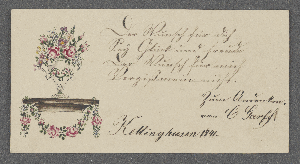 Der Wunsch für dich
Sey Glück und Freude
Der Wunsch für mich
Vergiß mein nicht.
Zum Andenken
von C.
Kellinghusen 1841.